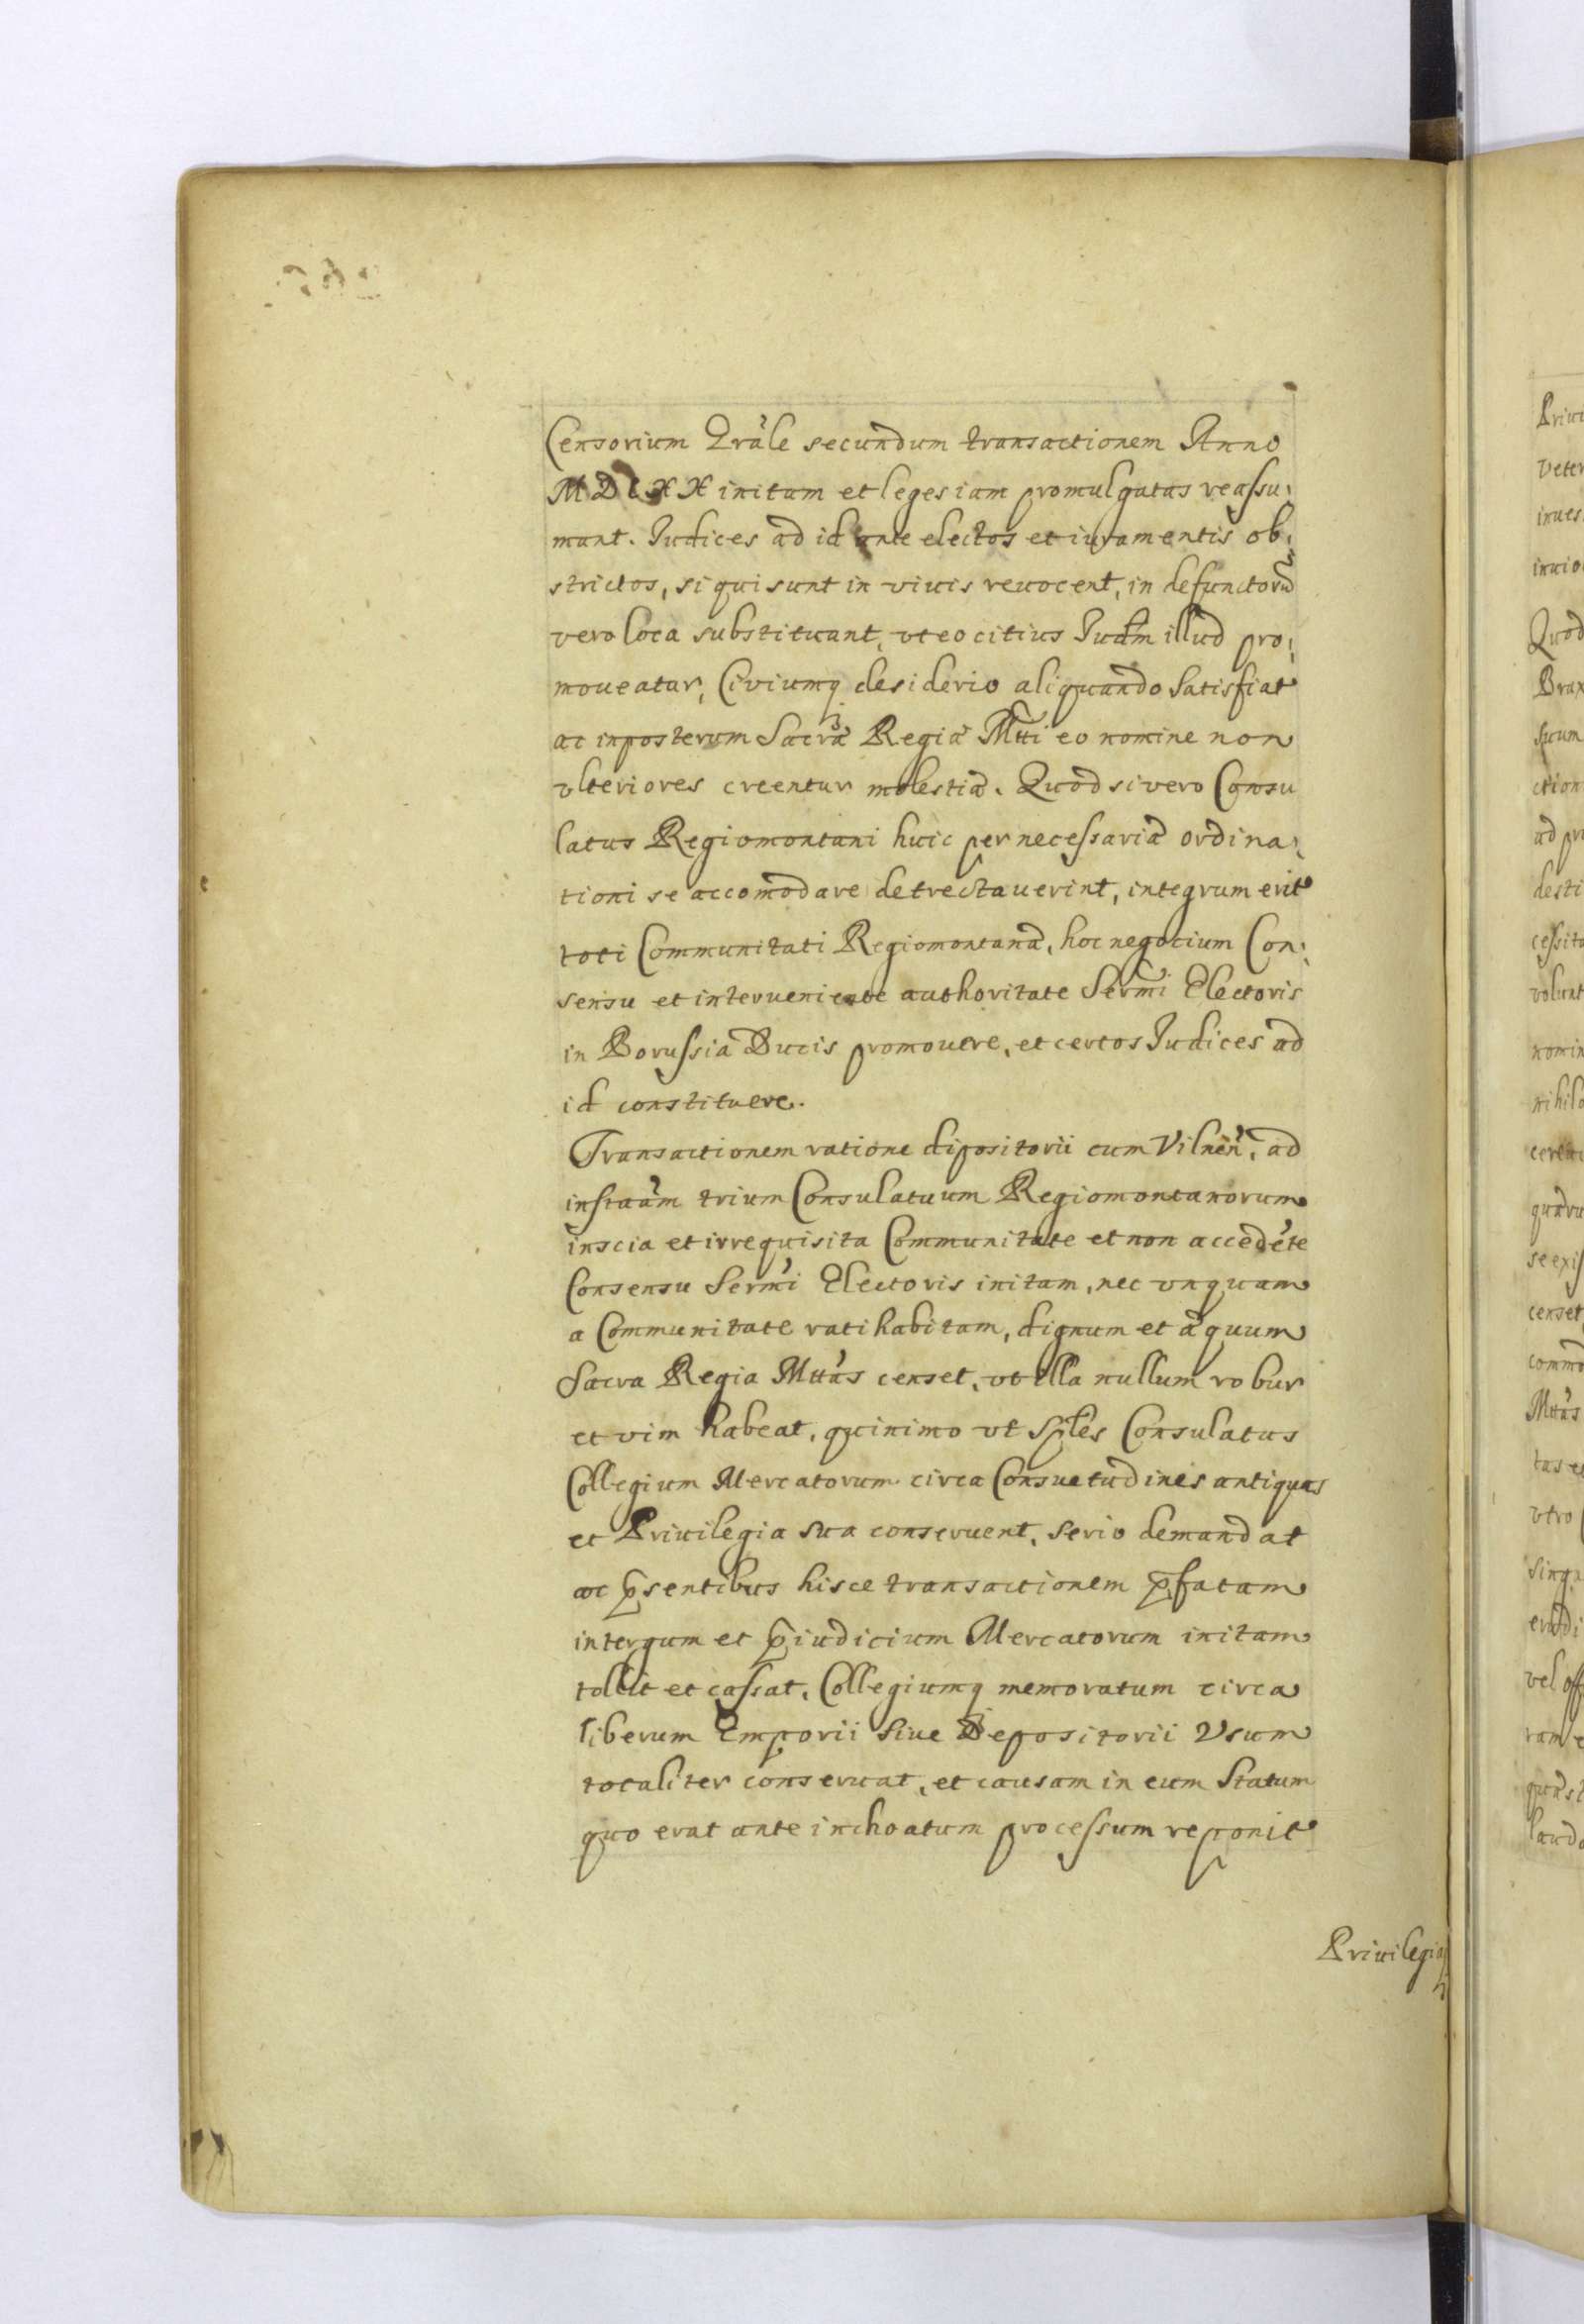 Censorium Gräle secundum transactionem Anno
MDCXX initam et leges iam promulgatas reassu:
mant. Iudices ad id ante electos et iuramentis ob:
strictos, si qui sunt in viuis reuocent, in defunctorũ
vero loca substituant, vt eo citius Iudm illud pro:
moueatur, Civiumq desiderio aliquando Satisfiat
ac inposterum Sacræ Regiæ Mtti eo nomine non
vlteriores creentur molestiæ. Quod si vero Consu
latus Regiomontani huic per necessariæ ordina:
tioni se accomodare detrectauerint, integrum erit
toti Communitati Regiomontanæ, hoc negotium Con:
sensu et interueniente authoritate Sermi Electoris
in Borussia Ducis promouere, et certos Iudices ad
id constituere.
Transactionem ratione dipositorii cum Vilnen, ad
instaam trium Consulatuum Regiomontanorum
inscia et irrequisita Communitate et non accedēte
Consensu Sermi Electoris initam, nec vnquam
a Communitate ratihabitam, dignum et æquum
Sacra Regia Mttas censet, vt illa nullum robur
et vim habeat, quinimo vt Sples Consulatus
Collegium Mercatorum circa Consuetudines antiquas
et Priuilegia sua conseruent, Serio demandat
ac p̃sentibus hisce transactionem p̃fatam
intergum et p̃iudicium Mercatorum initam
tollit et cassat, Collegiumq memoratum circa
liberum Emporii Siue Depositorii Vsum
totaliter conseruat, et causam in eum Statum
quo erat ante inchoatum processum reponit
Priuilegia